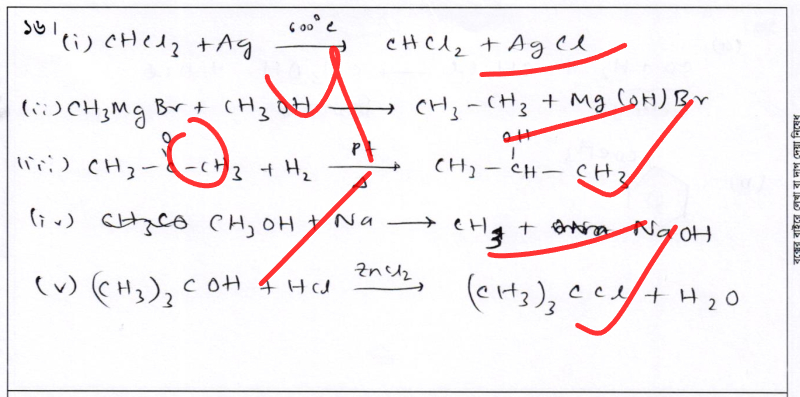 ১৬। (i) CHCl3 + Ag —600°C→ CHCl2 + AgCl
(ii) CH3MgBr + CH3OH ⟶ CH3-CH3 + Mg(OH)Br
(iii) CH3-C(=O)-CH3 + H2 —Pt/Δ→ CH3-CH(OH)-CH3
(iv) CH3OH + Na ⟶ CH3 + NaOH
(v) (CH3)3COH + HCl —ZnCl2→ (CH3)3CCl + H2O